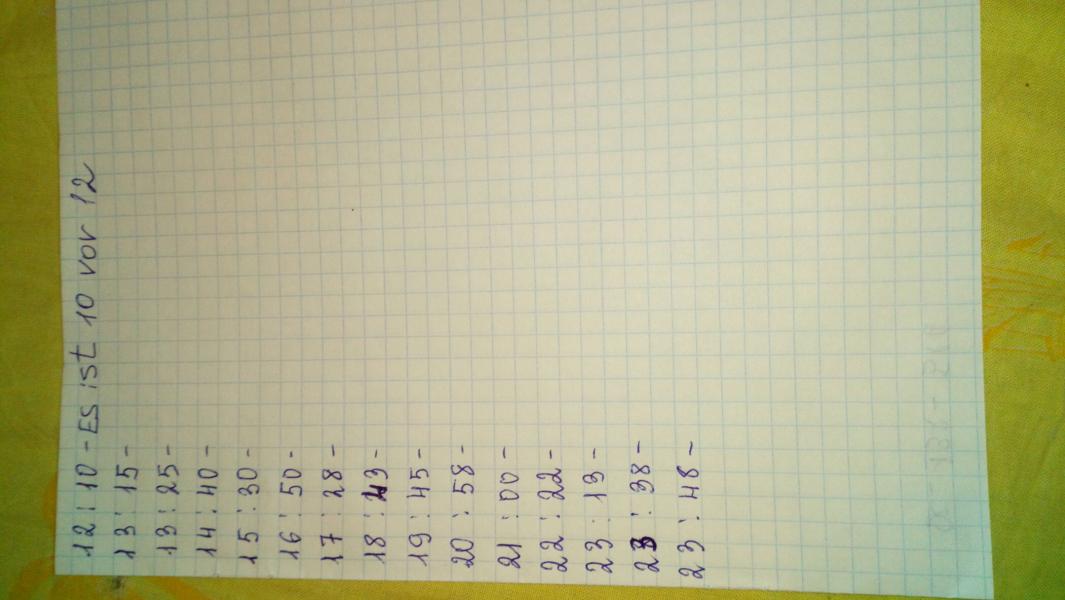 12:10 - Es ist 10 vor 12
13:15 -
13:25 -
14:40 -
15:30 -
16:50 -
17:28 -
18:43 -
19:45 -
20:58 -
21:00 -
22:22 -
23:13 -
23:38 -
23:48 -